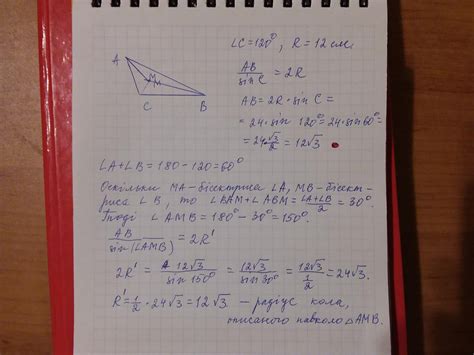 ∠C=120°, R=12 см.
A
M
C
B
AB/sin C = 2R
AB=2R·sin C =
=24·sin 120°=24·sin60°=
=24·√3/2=12√3
∠A+∠B=180-120=60°
Оскільки MA-бісектриса ∠A, MB-бісект-
риса ∠B, то ∠BAM+∠ABM=(∠A+∠B)/2=30°.
Тоді ∠AMB=180°-30°=150°.
AB/sin(∠AMB)=2R'
2R'=12√3/sin150°=12√3/sin30°=12√3/(1/2)=24√3.
R'=1/2·24√3=12√3 — радіус кола,
описаного навколо △AMB.